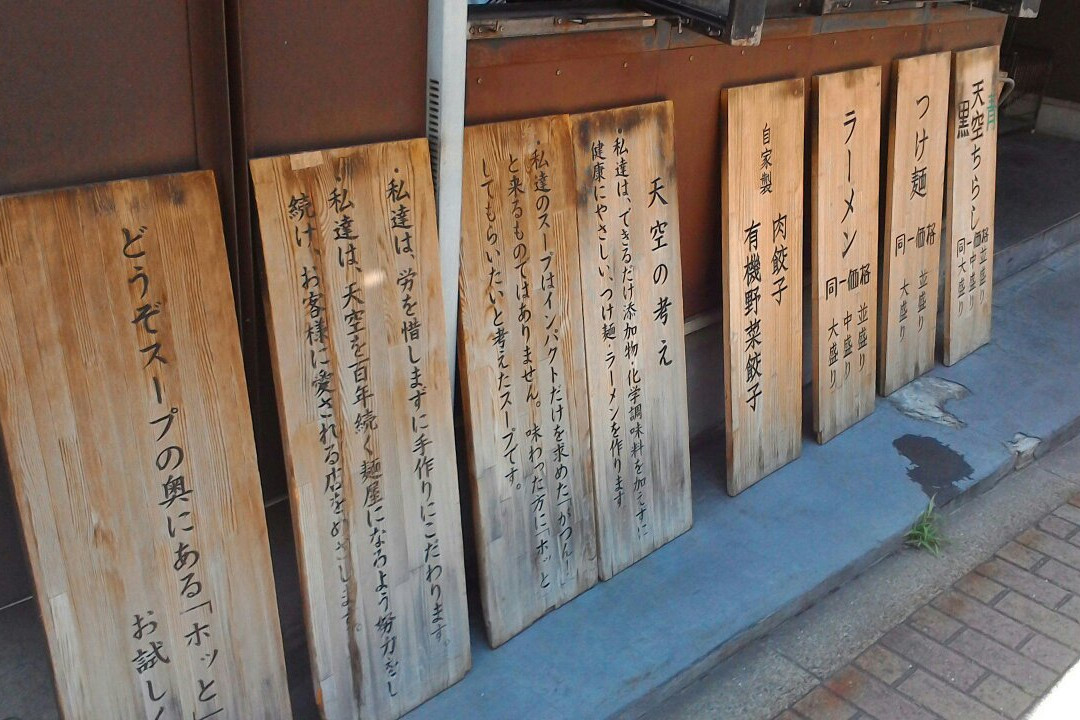 青
天空ちらし
黒
同一価格
並盛り
中盛り
大盛り
つけ麺
同一価格
並盛り
大盛り
ラーメン
同一価格
並盛り
中盛り
大盛り
自家製
肉餃子
有機野菜餃子
天空の考え
・私達は、できるだけ添加物・化学調味料を加えずに
健康にやさしい、つけ麺・ラーメンを作ります
・私達のスープはインパクトだけを求めた「がつん!」
と来るものではありません。味わった方に「ホッと」
してもらいたいと考えたスープです。
・私達は、労を惜しまずに手作りにこだわります。
・私達は、天空を百年続く麺屋になろよう努力をし
続け、お客様に愛される店をめざします。
どうぞスープの奥にある「ホッと」
お試しく